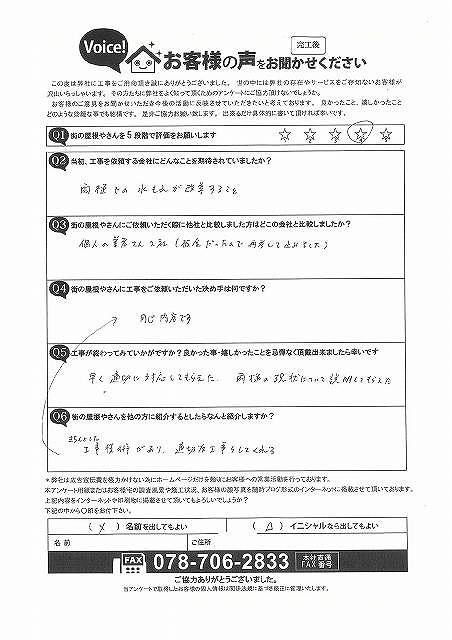 Voice!
完工後
お客様の声をお聞かせください
この度は弊社に工事をご用命頂き誠にありがとうございました。世の中には弊社の存在やサービスをご存知ないお客様が
沢山いらっしゃいます。その方たちに弊社をよく知って頂くためのアンケートにご協力頂けないでしょうか。
お客様のご意見をお聞かせいただき今後の活動に反映させていただきたいと考えております。良かったこと、嬉しかったこと
どのような些細な事でも結構です。是非ご協力お願い致します。出来るだけ具体的に書いて頂ければ幸いです。
Q1 街の屋根やさんを5段階で評価をお願いします
Q2 当初、工事を依頼する会社にどんなことを期待されていましたか?
雨樋での水もれが改善すること
Q3 街の屋根やさんにご依頼いただく際に他社と比較しました方はどこの会社と比較しましたか?
個人の業者さん2社
Q4 街の屋根やさんに工事をご依頼いただいた決め手は何ですか?
同じ内容です
Q5 工事が終わってみていかがですか?良かった事・嬉しかったことを忌憚なく頂戴出来ましたら幸いです
早く適切に対応してもらえた。雨樋の現状について説明してもらえた
Q6 街の屋根やさんを他の方に紹介するとしたらなんと紹介しますか?
きちんとした
工事技術があり、適切な工事をしてくれる
*弊社は広告宣伝費を極力かけない為にホームページだけを頼りにお客様への営業活動を行っております。
本アンケート用紙またはお客様宅の調査風景や施工状況、お客様の顔写真を随時ブログ形式のインターネットに掲載させて頂いております。
上記内容をインターネットや印刷物に掲載させて頂いてもよろしいでしょうか?
下記の中から〇印をお付下さい。
( )名前を出してもよい
( )イニシャルなら出してもよい
名前
ご住所
FAX 078-706-2833 本社直通FAX番号
ご協力ありがとうございました。
当アンケートで取得したお客様の個人情報は関係法規に基づき厳正に管理いたします。